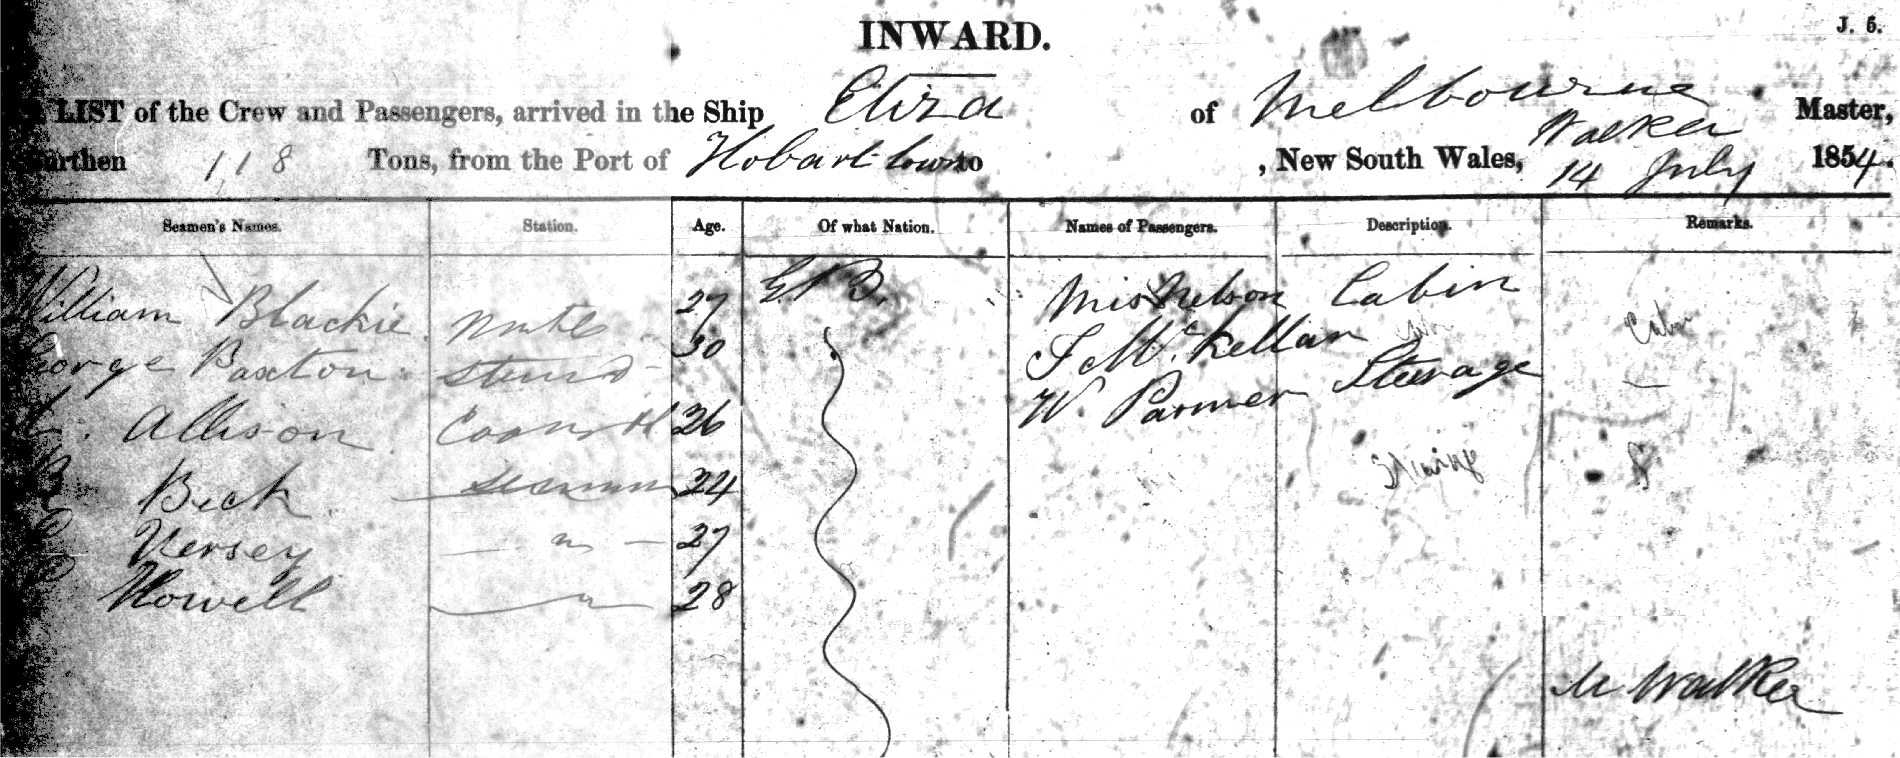 INWARD.
J. 5.
LIST of the Crew and Passengers, arrived in the Ship Eliza of Melbourne Walker Master,
Burthen 118 Tons, from the Port of Hobart town to , New South Wales, 14 July 1854.
Seamen's Names. Station. Age. Of what Nation. Names of Passengers. Description. Remarks.
William Blackie Mate 27 G. B. Miss Nelson Cabin
George Baxton Steward 30 J McKellar
W. Parmer Steerage
Allison 26
Beck Seaman 24
Versey 27
Howell 28
Walker